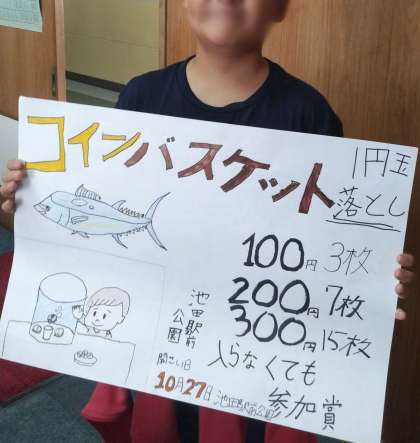 コインバスケット
1円玉
落とし
100円 3枚
200円 7枚
300円 15枚
池田駅前
公園
入らなくても
参加賞
開さい日
10月27日 池田駅前公園